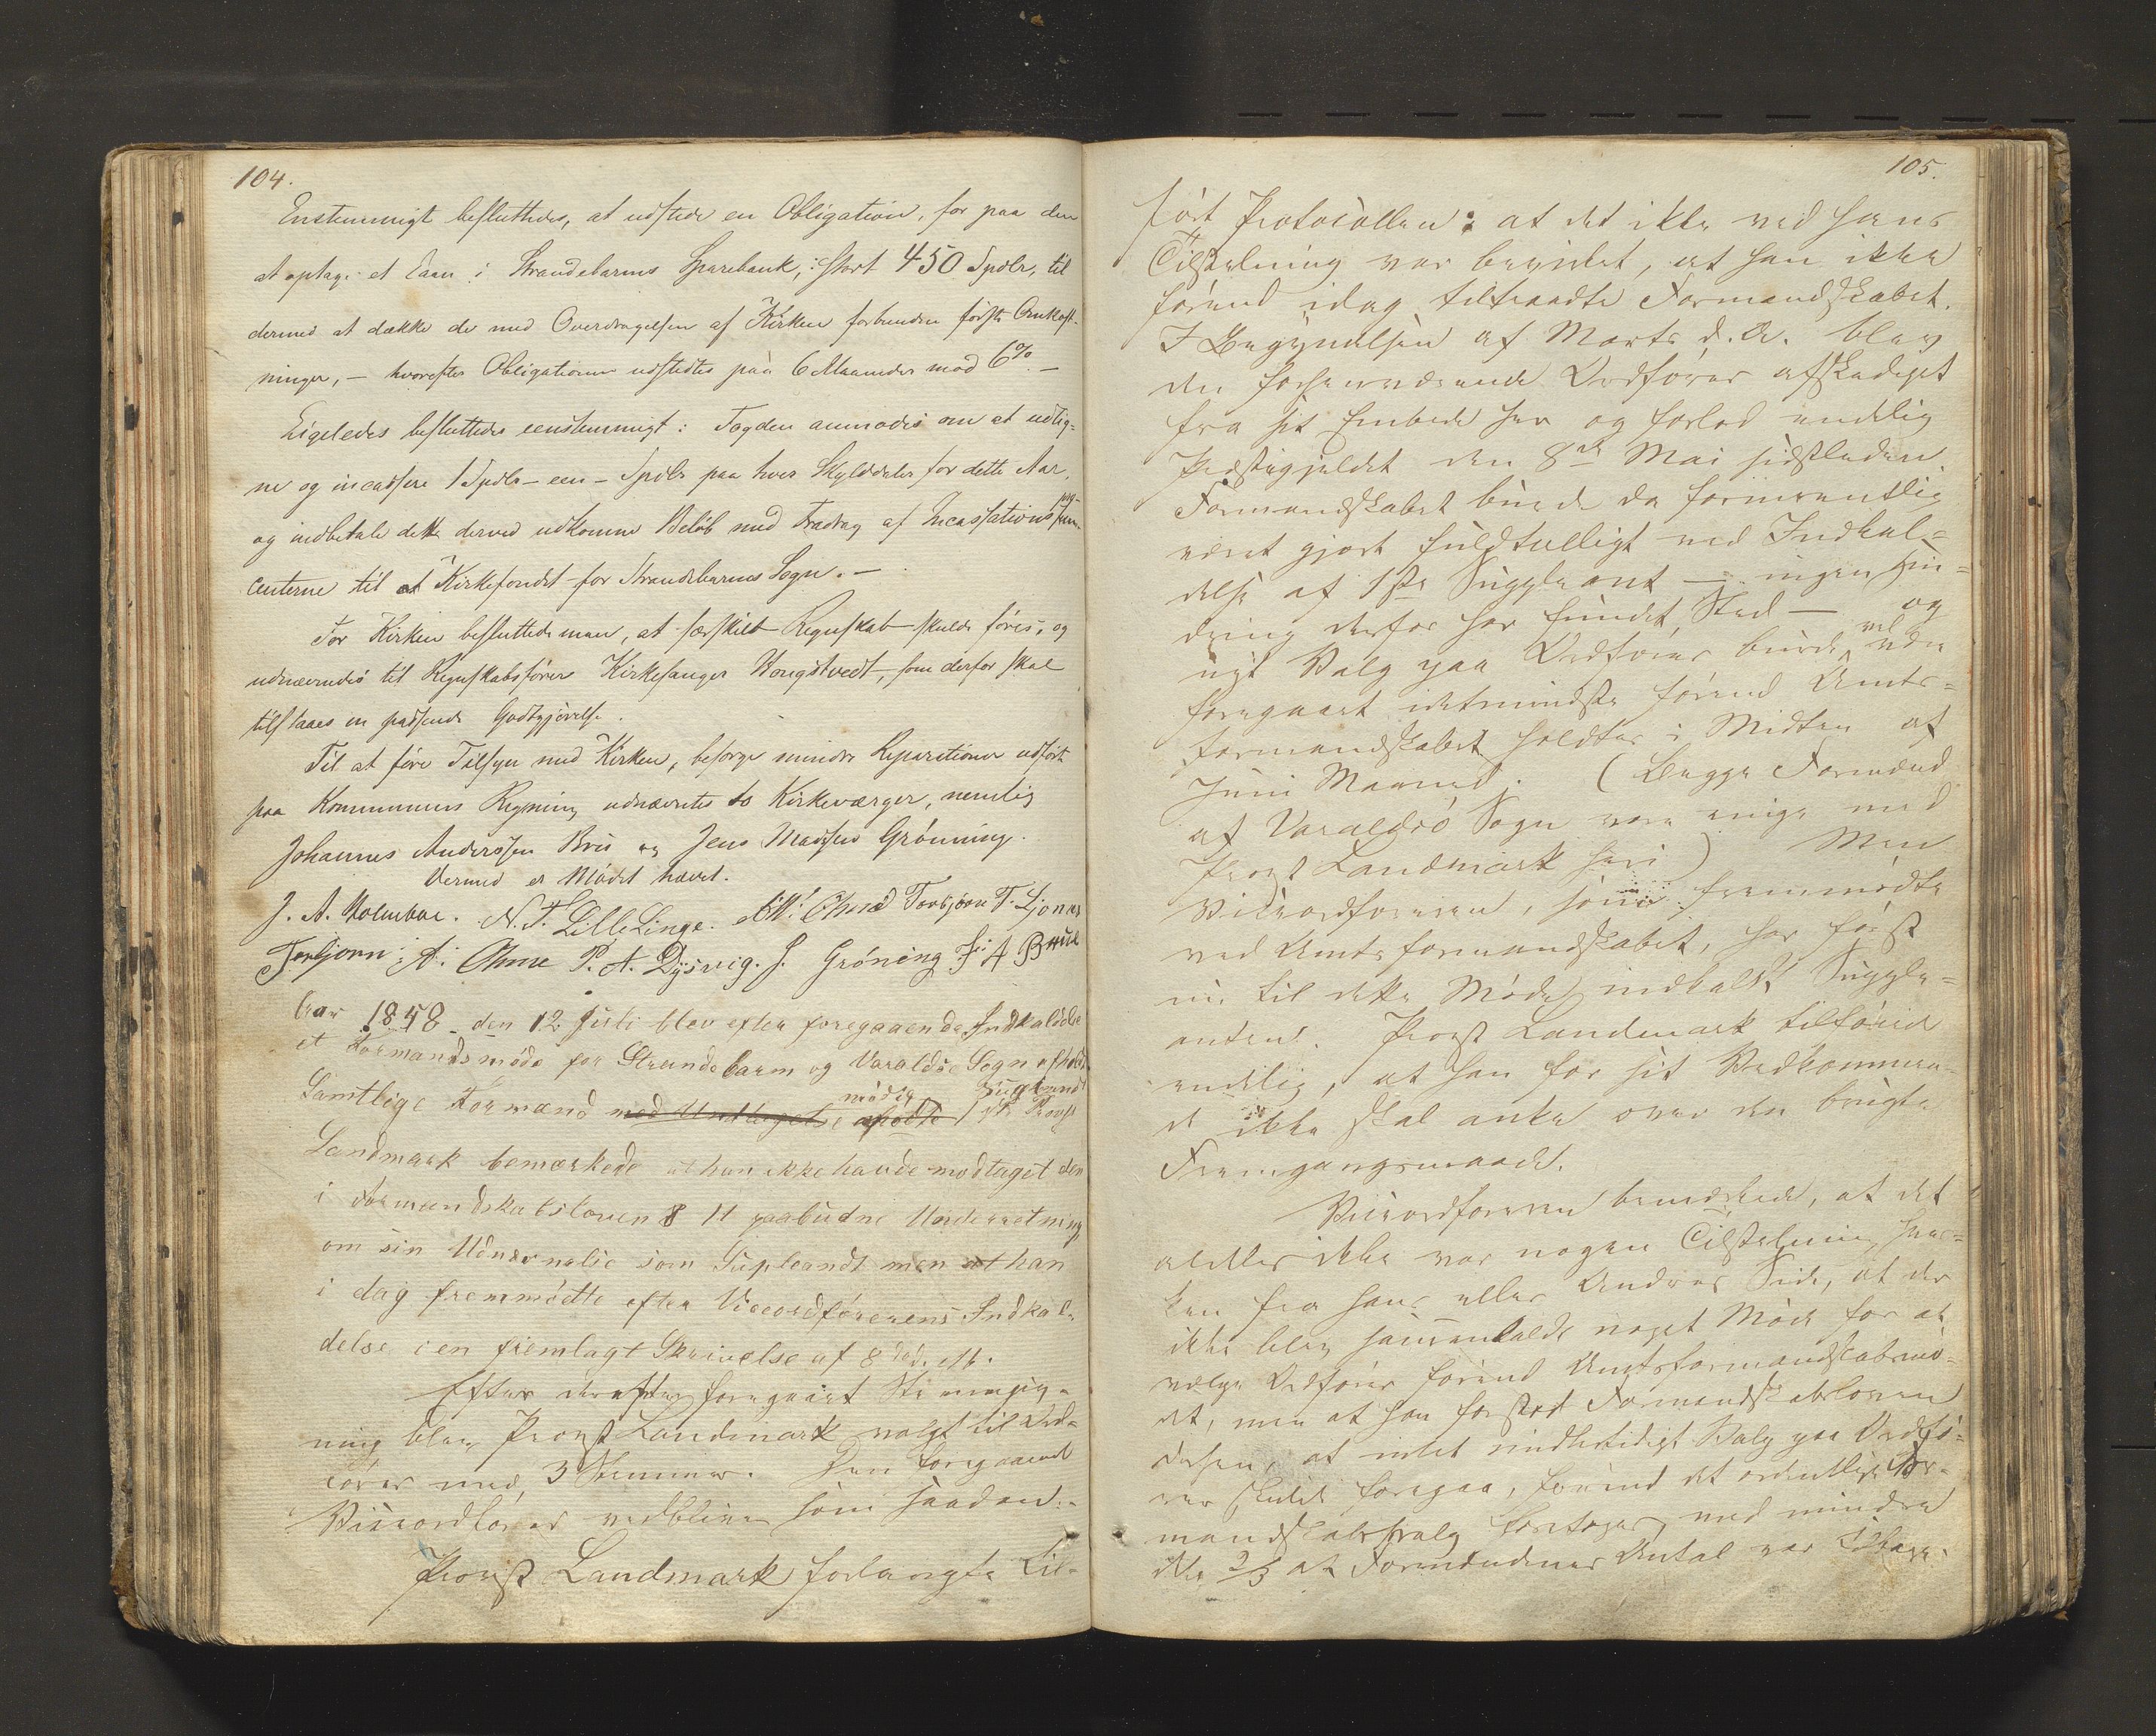 104.
Enstemmigt besluttedes, at udstede en Obligation, for paa den
at optage et Laan i Strandebarms Sparebank, stort 450 Spdlr, til
dermed at dække de med Overdragelsen af Kirken forbundne første Omkost-
ninger, – hvorefter Obligationen udstedtes paa 6 Maaneder mod 6% –
Ligeledes besluttedes eenstemmigt: Fogden anmodes om at udlig=
ne og incassere 1 Spdlr – een – Spdlr paa hver Skylddaler for dette Aar,
og indbetale dette derved udkomne Beløb med Fradrag af Incassations
centerne til Kirkefondet for Strandebarms Sogn. –
For Kirken besluttede man, at særskilt Regnskab skulde føres, og
udnævnedes til Regnskabsfører Kirkesanger Kongstvedt, som derfor skal
tilstaaes en passende Godtgjørelse.
Til at føre Tilsyn med Kirken, besørge mindre Reparationer udført
paa Kommunens Regning udnævntes to Kirkeværger, nemlig
Johannes Anderssen Brui og Jens Madssen Grønning.
Dermed er Mødet hævet.
J. A. Holmboe. N. T. LilleLinge. Torbjörn T. Ljones
Torbjörn A: Ohme P. A. Dysvig. J. Gröning J: A Bruu
Aar 1858 den 12 Juli blev efter foregaaende Indkaldelse
et Formandsmöde for Strandebarm og Varaldsö Sogn afholdt
Samtlige Formænd med Undtagelse mödte mödte 1ste Supleandt Provst
Landmark bemærkede at han ikke havde modtaget den
i Formandskabsloven § 11 paabudne Underretning
om sin Udnævnelse som Supleandt men at han
i dag fremmödte efter Viceordförerens Indkal-
delse i en fremlagt Skrivelse af 8 ds.
Efter derefter foregaaet Stemmegiv-
ning blev Provst Landmark valgt til Ord-
förer med 3 Stemmer. Den foregaaende
Viceordförer vedbliver som saadan.
Provst Landmark forlangte til-
105.
fört Protocollen: at det ikke ved hans
Tilskelning var beviket, at han ikke
förend idag tiltraadte Formandskabet.
I Begyndelsen af Marts d. A. blev
den forhenværende Ordförer afskediget
fra sit Embede her og forlod endelig
Præstegjeldet den 8de Mai sidstleden.
Formandskabet burde da formeentlig
været gjort fuldtalligt ved Indkal-
delse af 1ste Suppleant – ingen Hin-
dring derfor har fundet Sted – og
nyt Valg paa Ordförer burde vel være
foregaaet idetmindste förend Amts-
formandskabet holdtes i Midten af
Juni Maaned. (Begge Formænd
af Varaldsö Sogn vare enige med
Provst Landmark heri) Men
Viceordföreren, som fremmödte
ved Amtsformandskabet, har först
nu til dette Möde indkaldt Supple-
anten. Provst Landmark tilföiede
endelig, at han for sit Vedkommen-
de ikke skal anke over den brugte
Fremgangsmaade.
Viceordföreren bemærkede, at det
aldeles ikke var nogen Tilskelning, hver-
ken fra hans eller Andres Side, at der
ikke blev sammenkaldt noget Möde for at
vælge Ordförer förend Amtsformandskabsmö-
det, men at han forstod Formandskabsloven
derhen, at intet midlertidigt Valg paa Ordfö-
rer skulde foregaa, förend det ordentlige For-
mandskabsvalg foretoges, med mindre
ikke 2/3 af Formændenes Antal var tilbage.